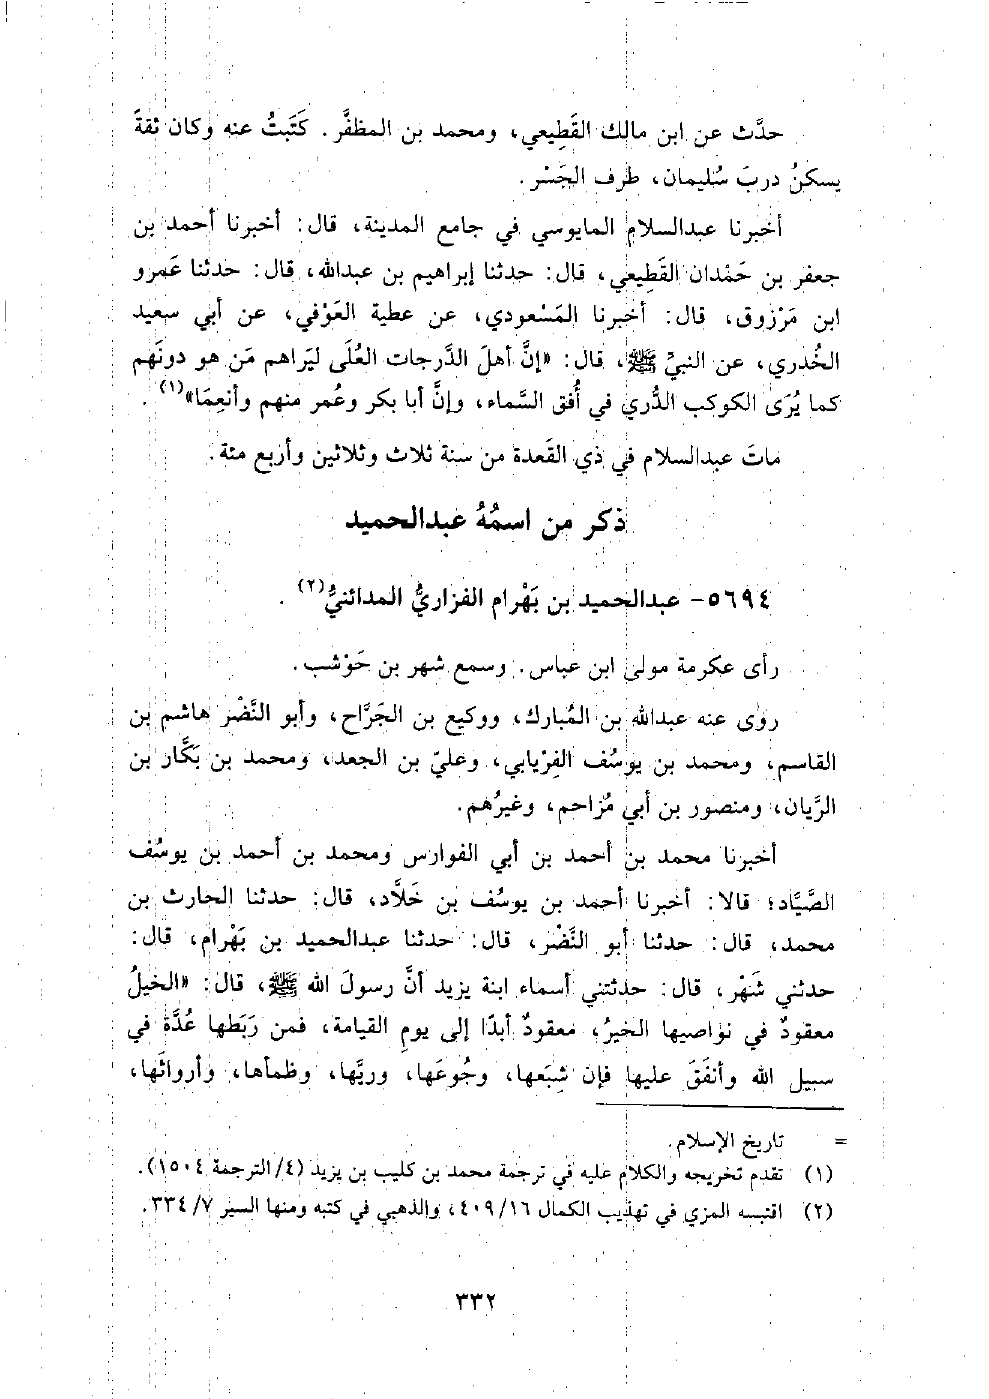 حدَّث عن ابن مالك القَطِيعي، ومحمد بن المظفَّر. كَتَبتُ عنه وكان ثقةً
يسكنُ دربَ سُليمان، طرف الجَسْر.
أخبرنا عبدالسلام المايوسي في جامع المدينة، قال: أخبرنا أحمد بن
جعفر بن حَمْدان القَطِيعي، قال: حدثنا إبراهيم بن عبدالله، قال: حدثنا عَمرو
ابن مَرْزوق، قال: أخبرنا المَسْعودي، عن عطية العَوْفي، عن أبي سعيد
الخُدري، عن النبيِّ ﷺ، قال: «إنَّ أهلَ الدَّرجات العُلَى ليَراهم مَن هو دونَهم
كما يُرَى الكوكب الدُّري في أُفق السَّماء، وإنَّ أبا بكر وعُمر منهم وأنعِمَا»(١).
ماتَ عبدالسلام في ذي القَعدة من سنة ثلاث وثلاثين وأربع مئة.
ذكر من اسمُهُ عبدالحميد
٥٦٩٤- عبدالحميد بن بَهْرام الفزاريُّ المدائنيُّ(٢).
رأى عكرمة مولى ابن عباس. وسمع شهر بن حَوْشب.
روى عنه عبدالله بن المُبارك، ووكيع بن الجَرَّاح، وأبو النَّضْر هاشم بن
القاسم، ومحمد بن يوسُف الفِرْيابي، وعليّ بن الجعد، ومحمد بن بَكَّار بن
الرَّيان، ومنصور بن أبي مُزاحم، وغيرُهم.
أخبرنا محمد بن أحمد بن أبي الفوارس ومحمد بن أحمد بن يوسُف
الصَّيَّاد؛ قالا: أخبرنا أحمد بن يوسُف بن خَلَّاد، قال: حدثنا الحارث بن
محمد، قال: حدثنا أبو النَّضْر، قال: حدثنا عبدالحميد بن بَهْرام، قال:
حدثني شَهْر، قال: حدثتني أسماء ابنة يزيد أنَّ رسولَ الله ﷺ، قال: «الخيلُ
معقودٌ في نواصيها الخيرُ، معقودٌ أبدًا إلى يومِ القيامة، فمن رَبَطها عُدَّة في
سبيل الله وأنفَقَ عليها فإن شِبَعها، وجُوعَها، وريَّها، وظمأها، وأرواثَها،
= تاريخ الإسلام.
(١) تقدم تخريجه والكلام عليه في ترجمة محمد بن كليب بن يزيد (٤/ الترجمة ١٥٠٤).
(٢) اقتبسه المزي في تهذيب الكمال ١٦/ ٤٠٩، والذهبي في كتبه ومنها السير ٧/ ٣٣٤.
٣٣٢